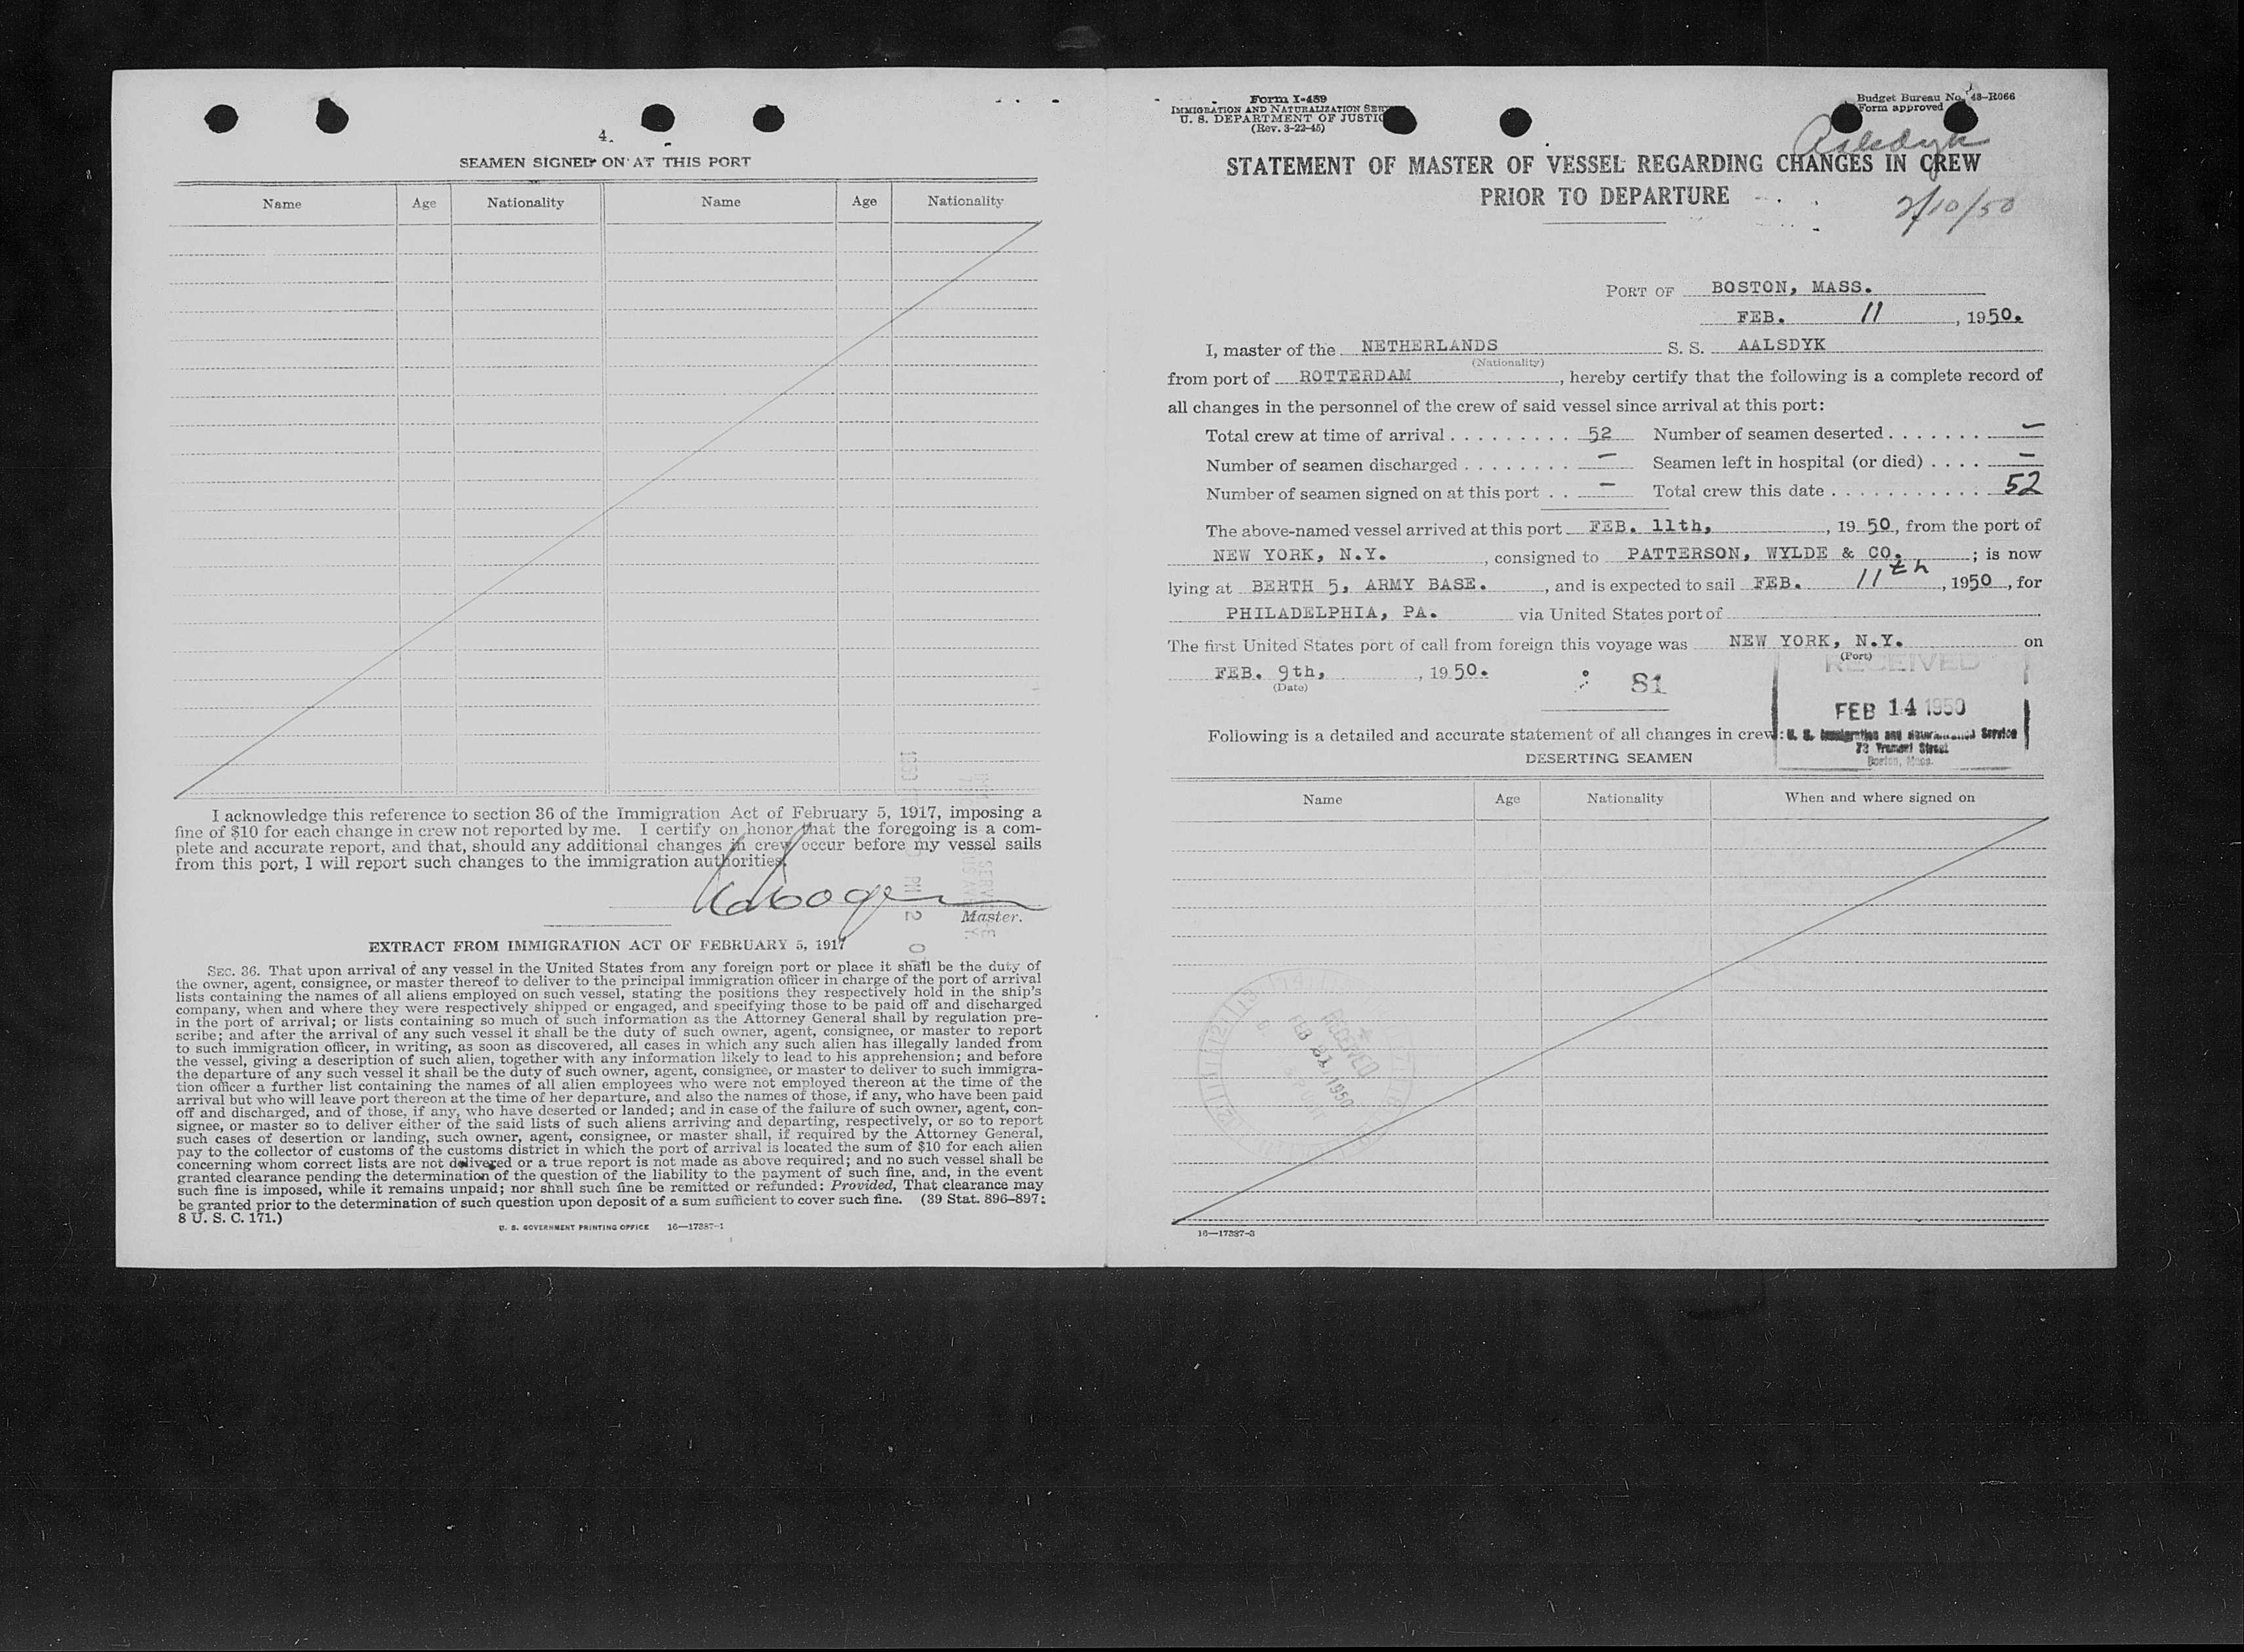 4.
SEAMEN SIGNED ON AT THIS PORT
Name Age Nationality Name Age Nationality
I acknowledge this reference to section 36 of the Immigration Act of February 5, 1917, imposing a
fine of $10 for each change in crew not reported by me. I certify on honor that the foregoing is a com-
plete and accurate report, and that, should any additional changes in crew occur before my vessel sails
from this port, I will report such changes to the immigration authorities.
Master.
EXTRACT FROM IMMIGRATION ACT OF FEBRUARY 5, 1917
SEC. 36. That upon arrival of any vessel in the United States from any foreign port or place it shall be the duty of
the owner, agent, consignee, or master thereof to deliver to the principal immigration officer in charge of the port of arrival
lists containing the names of all aliens employed on such vessel, stating the positions they respectively hold in the ship's
company, when and where they were respectively shipped or engaged, and specifying those to be paid off and discharged
in the port of arrival; or lists containing so much of such information as the Attorney General shall by regulation pre-
scribe; and after the arrival of any such vessel it shall be the duty of such owner, agent, consignee, or master to report
to such immigration officer, in writing, as soon as discovered, all cases in which any such alien has illegally landed from
the vessel, giving a description of such alien, together with any information likely to lead to his apprehension; and before
the departure of any such vessel it shall be the duty of such owner, agent, consignee, or master to deliver to such immigra-
tion officer a further list containing the names of all alien employees who were not employed thereon at the time of the
arrival but who will leave port thereon at the time of her departure, and also the names of those, if any, who have been paid
off and discharged, and of those, if any, who have deserted or landed; and in case of the failure of such owner, agent, con-
signee, or master so to deliver either of the said lists of such aliens arriving and departing, respectively, or so to report
such cases of desertion or landing, such owner, agent, consignee, or master shall, if required by the Attorney General,
pay to the collector of customs of the customs district in which the port of arrival is located the sum of $10 for each alien
concerning whom correct lists are not delivered or a true report is not made as above required; and no such vessel shall be
granted clearance pending the determination of the question of the liability to the payment of such fine, and, in the event
such fine is imposed, while it remains unpaid; nor shall such fine be remitted or refunded: Provided, That clearance may
be granted prior to the determination of such question upon deposit of a sum sufficient to cover such fine. (39 Stat. 896-897;
8 U. S. C. 171.)
U. S. GOVERNMENT PRINTING OFFICE 16—17387-1
Form I-489
IMMIGRATION AND NATURALIZATION
U. S. DEPARTMENT OF JUSTIC
(Rev. 3-22-45)
Budget Bureau No. 43-R066
Form approved
Aalsdyk
STATEMENT OF MASTER OF VESSEL REGARDING CHANGES IN CREW
PRIOR TO DEPARTURE
2/10/50
PORT OF BOSTON, MASS.
FEB. 11, 1950.
I, master of the NETHERLANDS S. S. AALSDYK
(Nationality)
from port of ROTTERDAM, hereby certify that the following is a complete record of
all changes in the personnel of the crew of said vessel since arrival at this port:
Total crew at time of arrival 52 Number of seamen deserted —
Number of seamen discharged — Seamen left in hospital (or died) —
Number of seamen signed on at this port — Total crew this date 52
The above-named vessel arrived at this port FEB. 11th, 1950, from the port of
NEW YORK, N.Y., consigned to PATTERSON, WYLDE & CO.; is now
lying at BERTH 5, ARMY BASE., and is expected to sail FEB. 11th, 1950, for
PHILADELPHIA, PA. via United States port of
The first United States port of call from foreign this voyage was NEW YORK, N.Y. on
(Port)
FEB. 9th, 1950.
(Date)
81
RECEIVED
FEB 14 1950
U. S. Immigration and Naturalization Service
73 Tremont Street
Boston, Mass.
Following is a detailed and accurate statement of all changes in crew:
DESERTING SEAMEN
Name Age Nationality When and where signed on
RECEIVED
FEB 1950
16—17387-3